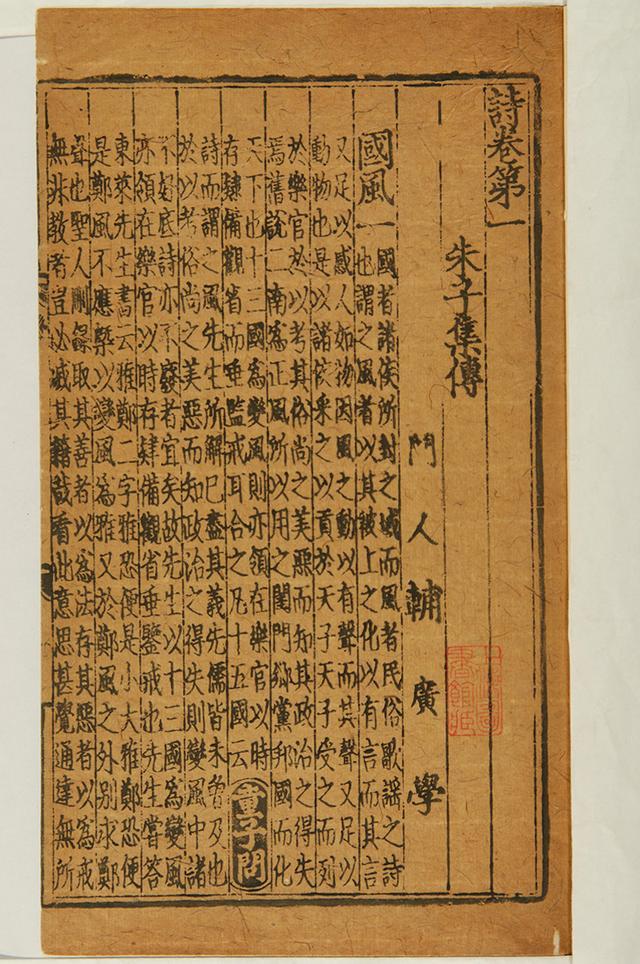 詩卷第一
朱子集傳
門人輔廣學
國風一
國者諸侯所封之域而風者民俗歌謠之詩
也謂之風者以其被上之化以有言而其言
又足以感人如物因風之動以有聲而其聲又足以
動物也是以諸侯采之以貢於天子天子受之而列
於樂官於以考其俗尚之美惡而知其政治之得失
焉舊說二南為正風所以用之閨門鄉黨邦國而化
天下也十三國為變風則亦領在樂官以時
有肄備觀省而垂監戒耳合之凡十五國云
童子問
詩而謂之風先生所解已盡其義先儒皆未曾及也
於以考俗尚之美惡而知政治之得失則變風中諸
不好底詩亦不廢者宜矣故先生以十三國為變風
亦領在樂官以時存肄備觀省垂鑒戒也先生嘗答
東萊先生書云雅鄭二字雅恐便是小大雅鄭恐便
是鄭風不應槩以變風為雅又於鄭風之外別求鄭
聲也聖人刪錄取其善者以為法存其惡者以為戒
無非教者豈必滅其籍哉看此意思甚覺通達無所